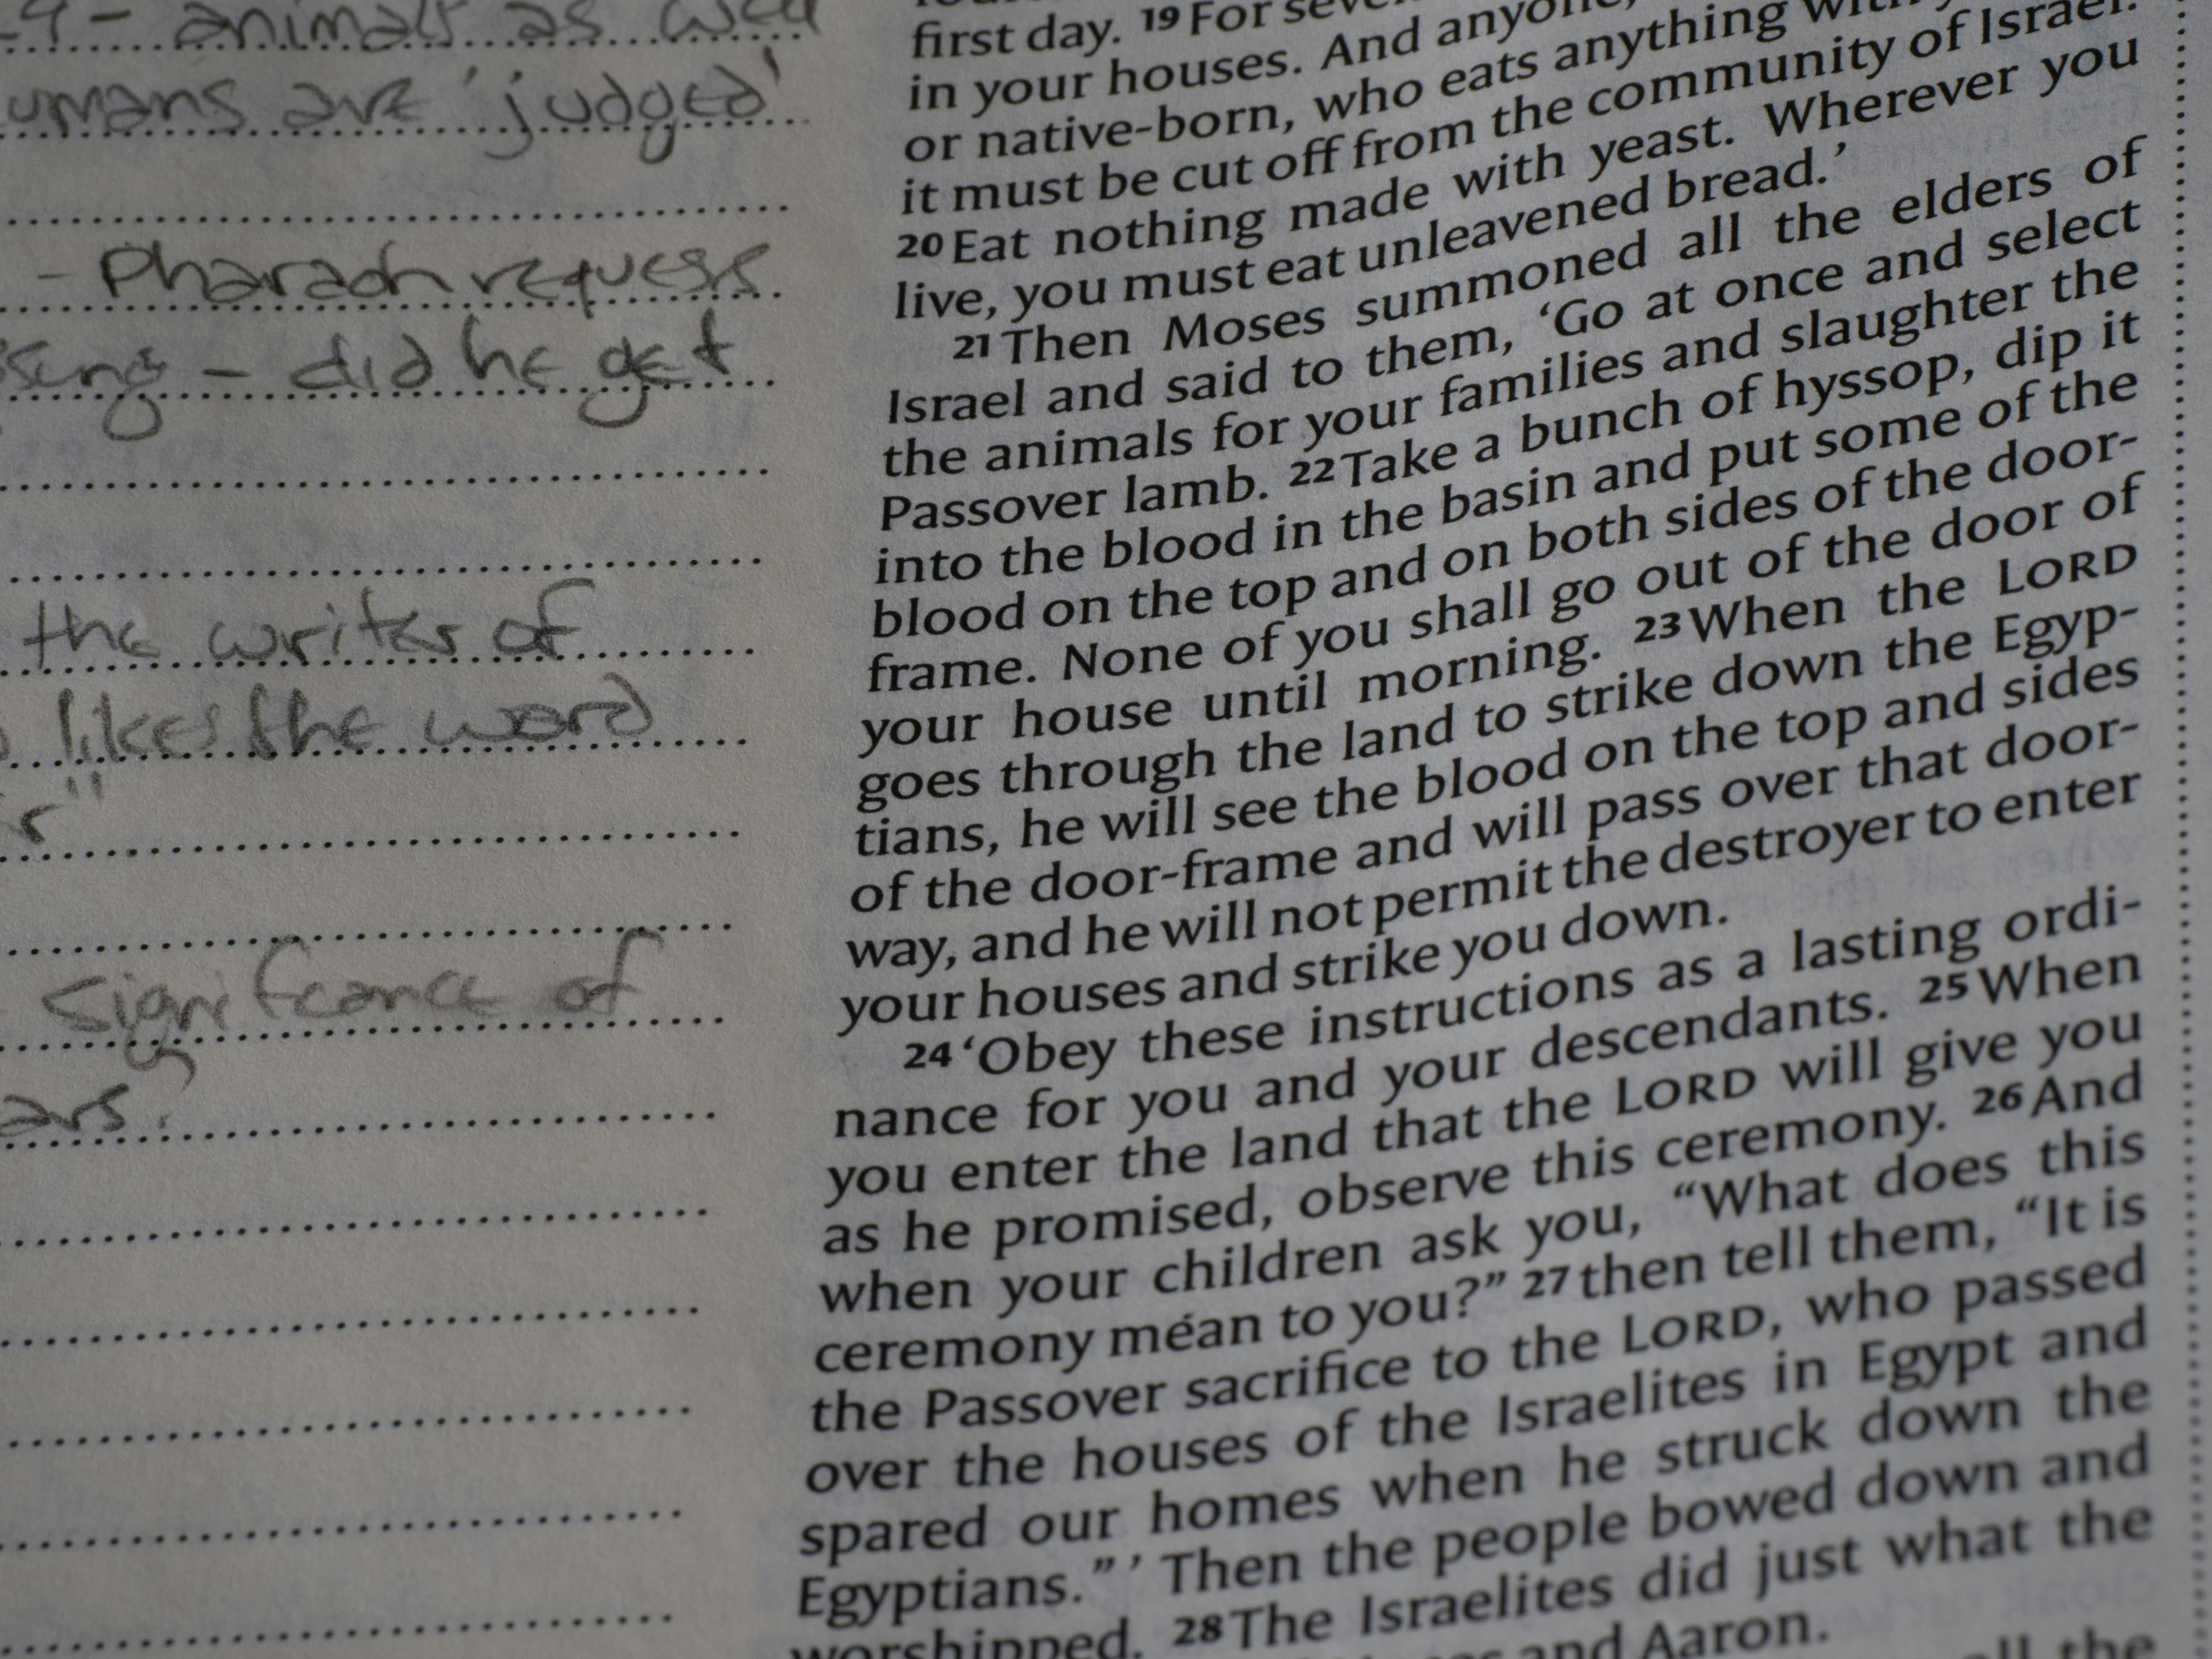 - animals as well
umans are 'judged'
- Pharaoh requess
sing - did he get
the writer of
likes the word
r"
significance of
ars?
first day. 19 For seve
in your houses. And anyone,
or native-born, who eats anything with
it must be cut off from the community of Israel.
20 Eat nothing made with yeast. Wherever you
live, you must eat unleavened bread.’
21 Then Moses summoned all the elders of
Israel and said to them, ‘Go at once and select
the animals for your families and slaughter the
Passover lamb. 22 Take a bunch of hyssop, dip it
into the blood in the basin and put some of the
blood on the top and on both sides of the door-
frame. None of you shall go out of the door of
your house until morning. 23 When the LORD
goes through the land to strike down the Egyp-
tians, he will see the blood on the top and sides
of the door-frame and will pass over that door-
way, and he will not permit the destroyer to enter
your houses and strike you down.
24 ‘Obey these instructions as a lasting ordi-
nance for you and your descendants. 25 When
you enter the land that the LORD will give you
as he promised, observe this ceremony. 26 And
when your children ask you, “What does this
ceremony mean to you?” 27 then tell them, “It is
the Passover sacrifice to the LORD, who passed
over the houses of the Israelites in Egypt and
spared our homes when he struck down the
Egyptians.” ’ Then the people bowed down and
worshipped. 28 The Israelites did just what the
and Aaron.
all the